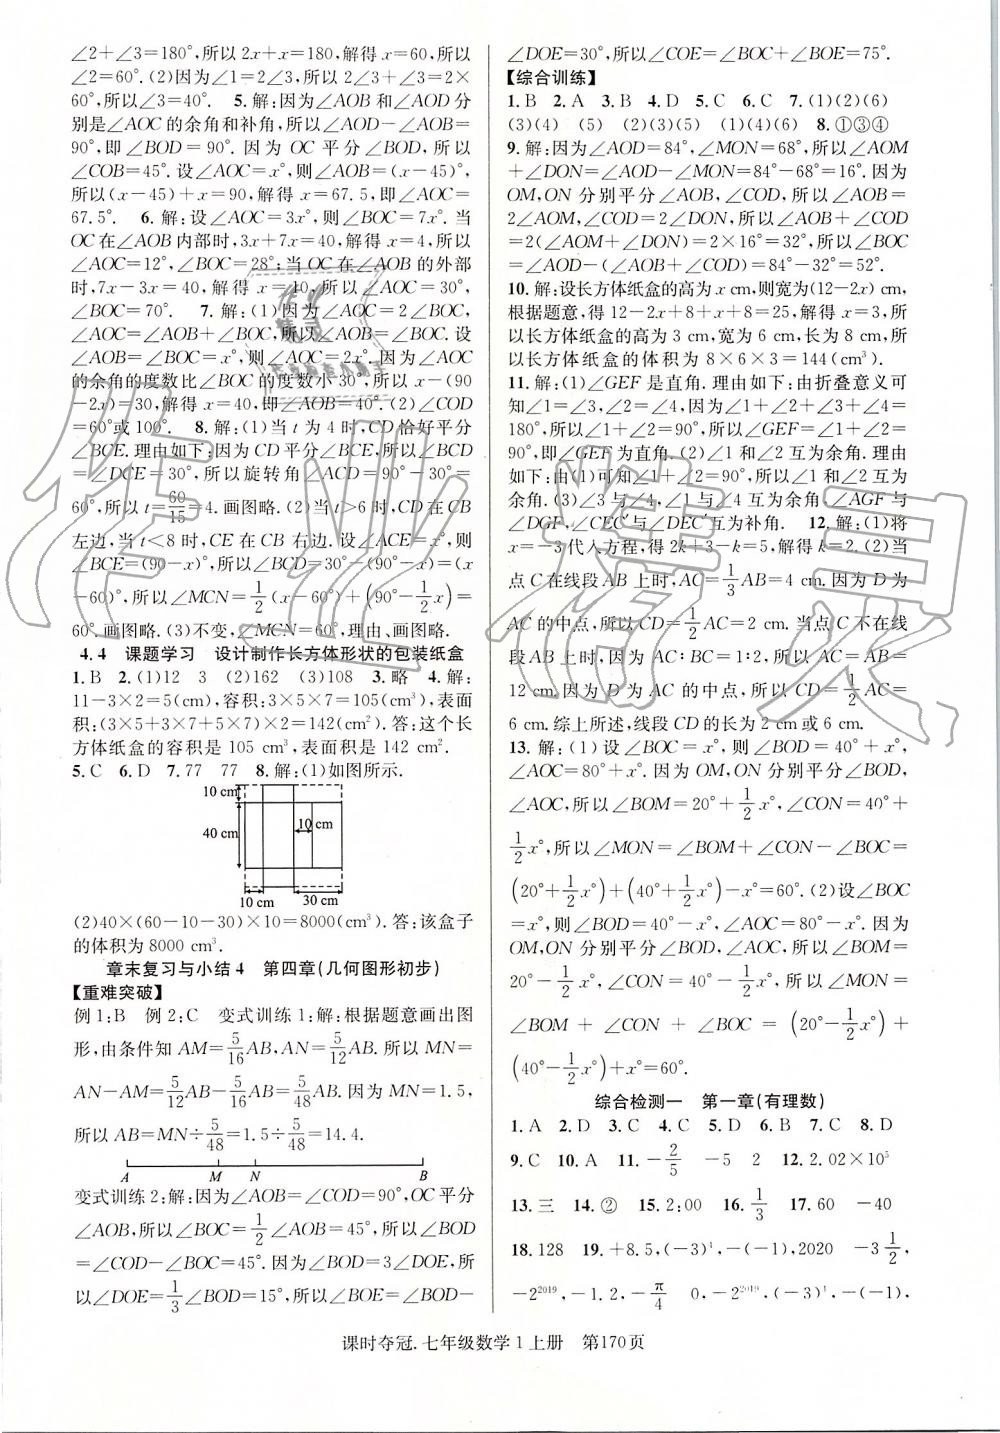 ∠2+∠3=180°,所以 2x+x=180,解得 x=60,所以
∠2=60°. (2)因为∠1=2∠2,所以∠2+∠3=2×
60°,所以∠3=40°. 5.解:因为∠AOB 和∠AOD 分
别是∠AOC 的余角和补角,所以∠AOD-∠AOB=
90°,即 ∠BOD = 90°. 因为 OC 平分∠BOD,所以
∠COB=45°. 设∠AOC=x°,则∠AOB=(x-45)°,
所以(x-45)+x=90,解得 x=67.5,即∠AOC=
67.5°. 6.解:设∠AOC=3x°,则∠BOC=7x°. 当
OC在∠AOB内部时,3x+7x=40,解得 x=4,所以
∠AOC=12°,∠BOC=28°;当OC在∠AOB的外部
时,7x-3x=40,解得 x=10,所以∠AOC=30°,
∠BOC=70°. 7.解:(1)因为∠AOC=2∠BOC,
∠AOC=∠AOB+∠BOC,所以∠AOB=∠BOC. 设
∠AOB=∠BOC=x°,则∠AOC=2x°. 因为∠AOC
的余角的度数比∠BOC的度数小30°,所以x-(90
-2x)=30,解得x=40,即∠AOB=40°. (2)∠COD
=60°或100°. 8.解:(1)当 t 为 4 时,CD恰好平分
∠BCE.理由如下:因为CD平分∠BCE,所以∠BCD
=∠DCE=30°,所以旋转角∠ACD=90°-30°=
60°,所以t=60/15=4. 画图略. (2)当 t>6 时,CD在CB
左边,当 t<8 时,CE在CB右边.设∠ACE=x°,则
∠BCE=(90-x)°,所以∠BCD=30°-(90°-x)=(x
-60)°,所以∠MCN=1/2(x-60°)+(90°-1/2x)=
60°.画图略.(3)不变,∠MCN=60°,理由、画图略.
4.4 课题学习 设计制作长方体形状的包装纸盒
1. B 2. (1)12 3 (2)162 (3)108 3. 略 4. 解:
11-3×2=5(cm),容积:3×5×7=105(cm³),表面
积:(3×5+3×7+5×7)×2=142(cm²). 答:这个长
方体纸盒的容积是 105 cm³,表面积是 142 cm².
5. C 6. D 7. 77 77 8. 解:(1)如图所示.
10 cm
40 cm
10 cm
10 cm 30 cm
(2)40×(60-10-30)×10=8000(cm³). 答:该盒子
的体积为 8000 cm³.
章末复习与小结 4 第四章(几何图形初步)
【重难突破】
例 1:B 例 2:C 变式训练 1:解:根据题意画出图
形,由条件知 AM=5/16AB,AN=5/12AB. 所以 MN=
AN-AM=5/12AB-5/16AB=5/48AB. 因为 MN=1.5,
所以 AB=MN÷5/48=1.5÷5/48=14.4.
A M N B
变式训练 2:解:因为∠AOB=∠COD=90°,OC平分
∠AOB,所以∠BOC=1/2∠AOB=45°,所以∠BOD
=∠COD-∠BOC=45°. 因为∠BOD=3∠DOE,所
以∠DOE=1/3∠BOD=15°,所以∠BOE=∠BOD-
∠DOE=30°,所以∠COE=∠BOC+∠BOE=75°.
【综合训练】
1. B 2. A 3. B 4. D 5. C 6. C 7. (1)(2)(6)
(3)(4) (5) (2)(3)(5) (1)(4)(6) 8. ①③④
9. 解:因为∠AOD=84°,∠MON=68°,所以∠AOM
+∠DON=∠AOD-∠MON=84°-68°=16°. 因为
OM,ON 分别平分∠AOB,∠COD,所以∠AOB=
2∠AOM,∠COD=2∠DON,所以∠AOB+∠COD
=2(∠AOM+∠DON)=2×16°=32°,所以∠BOC
=∠AOD-(∠AOB+∠COD)=84°-32°=52°.
10. 解:设长方体纸盒的高为 x cm,则宽为(12-2x) cm,
根据题意,得 12-2x+8+x+8=25,解得 x=3,所
以长方体纸盒的高为 3 cm,宽为 6 cm,长为 8 cm,所
以长方体纸盒的体积为 8×6×3=144(cm³).
11. 解:(1)∠GEF是直角. 理由如下:由折叠意义可
知∠1=∠3,∠2=∠4. 因为∠1+∠2+∠3+∠4=
180°,所以∠1+∠2=90°,所以∠GEF=∠1+∠2=
90°,即∠GEF为直角. (2)∠1 和∠2 互为余角. 理由
如下:由(1)可知∠1+∠2=90°,所以∠1 和∠2 互为
余角. (3)∠3 与∠4,∠1 与∠4 互为余角,∠AGF 与
∠DGF,∠CEC′与∠DEC′互为补角. 12. 解:(1)将
x=-3 代入方程,得 2k+3-k=5,解得 k=2. (2)当
点 C 在线段 AB 上时,AC=1/3AB=4 cm. 因为 D 为
AC 的中点,所以 CD=1/2AC=2 cm. 当点 C 不在线
段 AB 上时,因为 AC∶BC=1∶2,所以 AC=AB=
12 cm. 因为 D 为 AC 的中点,所以 CD=1/2AC=
6 cm. 综上所述,线段 CD 的长为 2 cm 或 6 cm.
13. 解:(1)设∠BOC=x°,则∠BOD=40°+x°,
∠AOC=80°+x°. 因为 OM,ON 分别平分∠BOD,
∠AOC,所以∠BOM=20°+1/2x°,∠CON=40°+
1/2x°,所以∠MON=∠BOM+∠CON-∠BOC=
(20°+1/2x°)+(40°+1/2x°)-x°=60°. (2)设∠BOC
=x°,则∠BOD=40°-x°,∠AOC=80°-x°. 因为
OM,ON 分别平分∠BOD,∠AOC,所以∠BOM=
20°-1/2x°,∠CON=40°-1/2x°,所以∠MON=
∠BOM+∠CON+∠BOC=(20°-1/2x°)+
(40°-1/2x°)+x°=60°.
综合检测一 第一章(有理数)
1. A 2. D 3. C 4. C 5. D 6. B 7. C 8. D
9. C 10. A 11. -2/5 -5 2 12. 2.02×10⁵
13. 三 14. ② 15. 2:00 16. 1/3 17. 60 -40
18. 128 19. +8.5,(-3)⁴,-(-1),2020 -3 1/2,
-2²⁰¹⁹,-1.2,-π/4 0,-2²⁰¹⁹,(-3)⁴,-(-1),
课时夺冠.七年级数学 1 上册 第170页
作业精灵